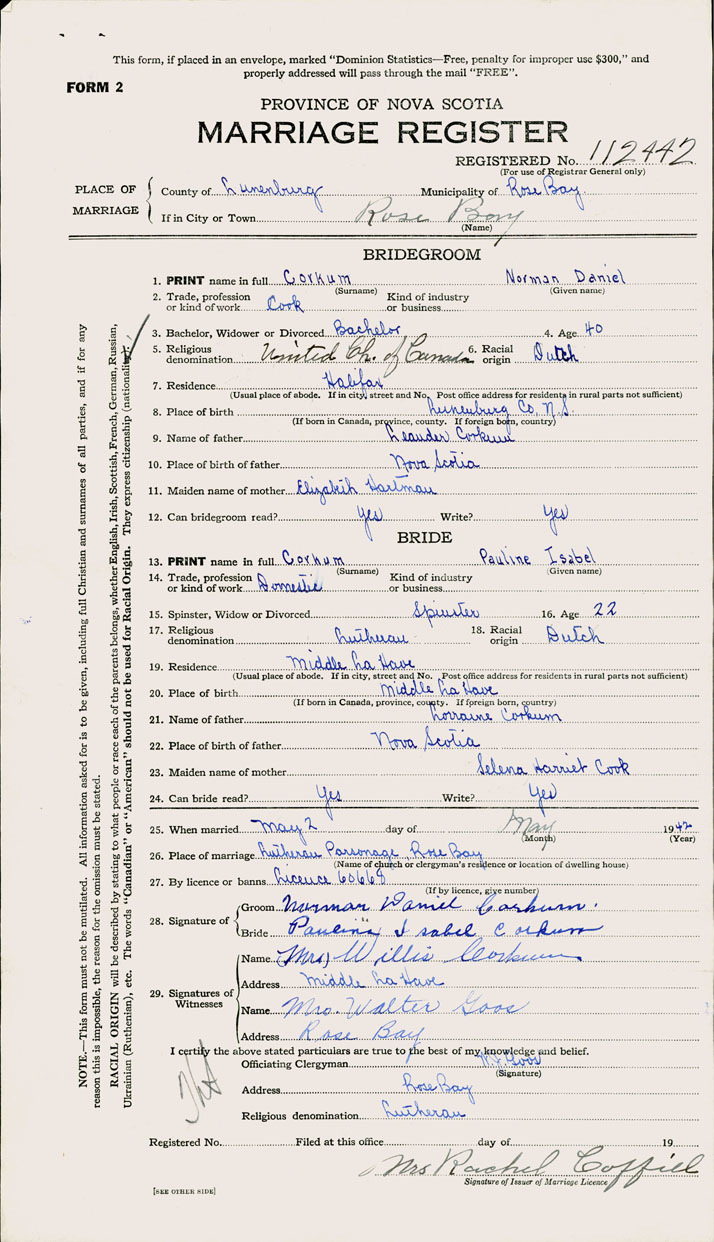 This form, if placed in an envelope, marked "Dominion Statistics—Free, penalty for improper use $300," and
properly addressed will pass through the mail "FREE".
FORM 2
PROVINCE OF NOVA SCOTIA
MARRIAGE REGISTER
REGISTERED No. 112442
(For use of Registrar General only)
PLACE OF MARRIAGE
County of Lunenburg Municipality of Rose Bay
If in City or Town Rose Bay
(Name)
BRIDEGROOM
1. PRINT name in full Corkum Norman Daniel
(Surname) (Given name)
2. Trade, profession or kind of work Cook Kind of industry or business
3. Bachelor, Widower or Divorced Bachelor 4. Age 40
5. Religious denomination United Ch. of Canada 6. Racial origin Dutch
7. Residence Halifax
(Usual place of abode. If in city, street and No. Post office address for residents in rural parts not sufficient)
8. Place of birth Lunenburg Co. N.S.
(If born in Canada, province, county. If foreign born, country)
9. Name of father Leander Corkum
10. Place of birth of father Nova Scotia
11. Maiden name of mother Elizabeth Hartman
12. Can bridegroom read? Yes Write? Yes
BRIDE
13. PRINT name in full Corkum Pauline Isabel
(Surname) (Given name)
14. Trade, profession or kind of work Domestic Kind of industry or business
15. Spinster, Widow or Divorced Spinster 16. Age 22
17. Religious denomination Lutheran 18. Racial origin Dutch
19. Residence Middle La Have
(Usual place of abode. If in city, street and No. Post office address for residents in rural parts not sufficient)
20. Place of birth Middle La Have
(If born in Canada, province, county. If foreign born, country)
21. Name of father Lorraine Corkum
22. Place of birth of father Nova Scotia
23. Maiden name of mother Selena Harriet Cook
24. Can bride read? Yes Write? Yes
25. When married May 2 day of May 1942
(Month) (Year)
26. Place of marriage Lutheran Parsonage, Rose Bay
(Name of church or clergyman's residence or location of dwelling house)
27. By licence or banns Licence 60668
(If by licence, give number)
28. Signature of
Groom Norman Daniel Corkum.
Bride Pauline Isabel Corkum
29. Signatures of Witnesses
Name (Mrs) Willis Corkum
Address Middle La Have
Name Mrs. Walter Goos
Address Rose Bay
I certify the above stated particulars are true to the best of my knowledge and belief.
Officiating Clergyman W. Goos
(Signature)
Address Rose Bay
Religious denomination Lutheran
Registered No. Filed at this office day of 19
Mrs Rachel Coffill
Signature of Issuer of Marriage Licence
[SEE OTHER SIDE]
NOTE.—This form must not be mutilated. All information asked for is to be given, including full Christian and surnames of all parties, and if for any
reason this is impossible, the reason for the omission must be stated.
RACIAL ORIGIN will be described by stating to what people or race each of the parents belongs, whether English, Irish, Scottish, French, German, Russian,
Ukrainian (Ruthenian), etc. The words "Canadian" or "American" should not be used for Racial Origin. They express citizenship (nationality).